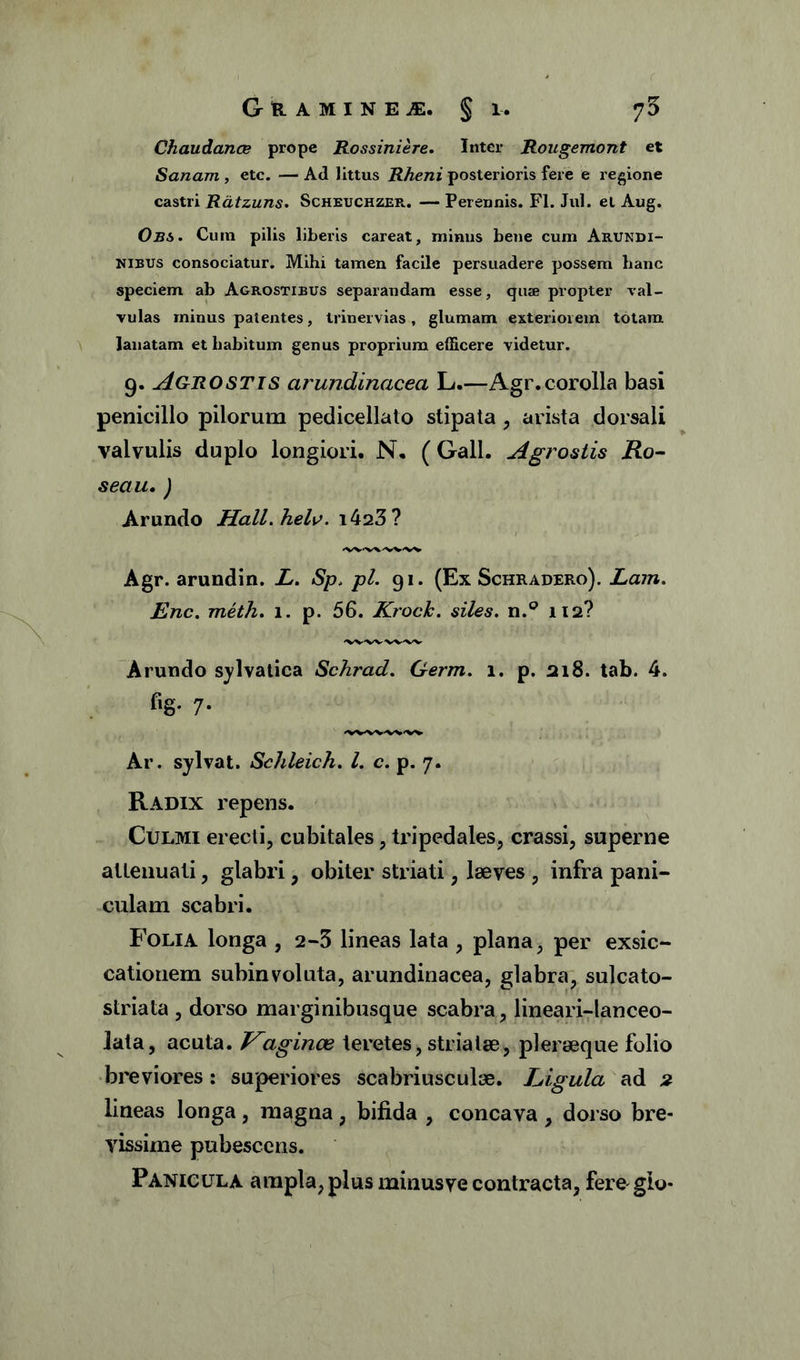 GRAMINEÆ. § 1. 73
Chaudance prope Rossinière. Inter Rougemont et
Sanam, etc. — Ad littus Rheni posterioris fere e regione
castri Rätzuns. SCHEUCHZER. — Perennis. Fl. Jul. et Aug.
OBS. Cum pilis liberis careat, minus bene cum ARUNDI-
NIBUS consociatur. Mihi tamen facile persuadere possem hanc
speciem ab AGROSTIBUS separandam esse, quæ propter val-
vulas minus patentes, trinervias, glumam exteriorem totam
lanatam et habitum genus proprium efficere videtur.
9. AGROSTIS arundinacea L.—Agr. corolla basi
penicillo pilorum pedicellato stipata, arista dorsali
valvulis duplo longiori. N. (Gall. Agrostis Ro-
seau.)
Arundo Hall. helv. 1423?
Agr. arundin. L. Sp. pl. 91. (Ex SCHRADERO). Lam.
Enc. méth. 1. p. 56. Krock. siles. n.º 112?
Arundo sylvatica Schrad. Germ. 1. p. 218. tab. 4.
fig. 7.
Ar. sylvat. Schleich. l. c. p. 7.
RADIX repens.
CULMI erecti, cubitales, tripedales, crassi, superne
attenuati, glabri, obiter striati, læves, infra pani-
culam scabri.
FOLIA longa, 2-3 lineas lata, plana, per exsic-
cationem subinvoluta, arundinacea, glabra, sulcato-
striata, dorso marginibusque scabra, lineari-lanceo-
lata, acuta. Vaginæ teretes, striatæ, pleræque folio
breviores: superiores scabriusculæ. Ligula ad 2
lineas longa, magna, bifida, concava, dorso bre-
vissime pubescens.
PANICULA ampla, plus minusve contracta, fere glo-